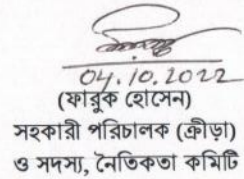 04.10.2022
(ফারুক হোসেন)
সহকারী পরিচালক (ক্রীড়া)
ও সদস্য, নৈতিকতা কমিটি